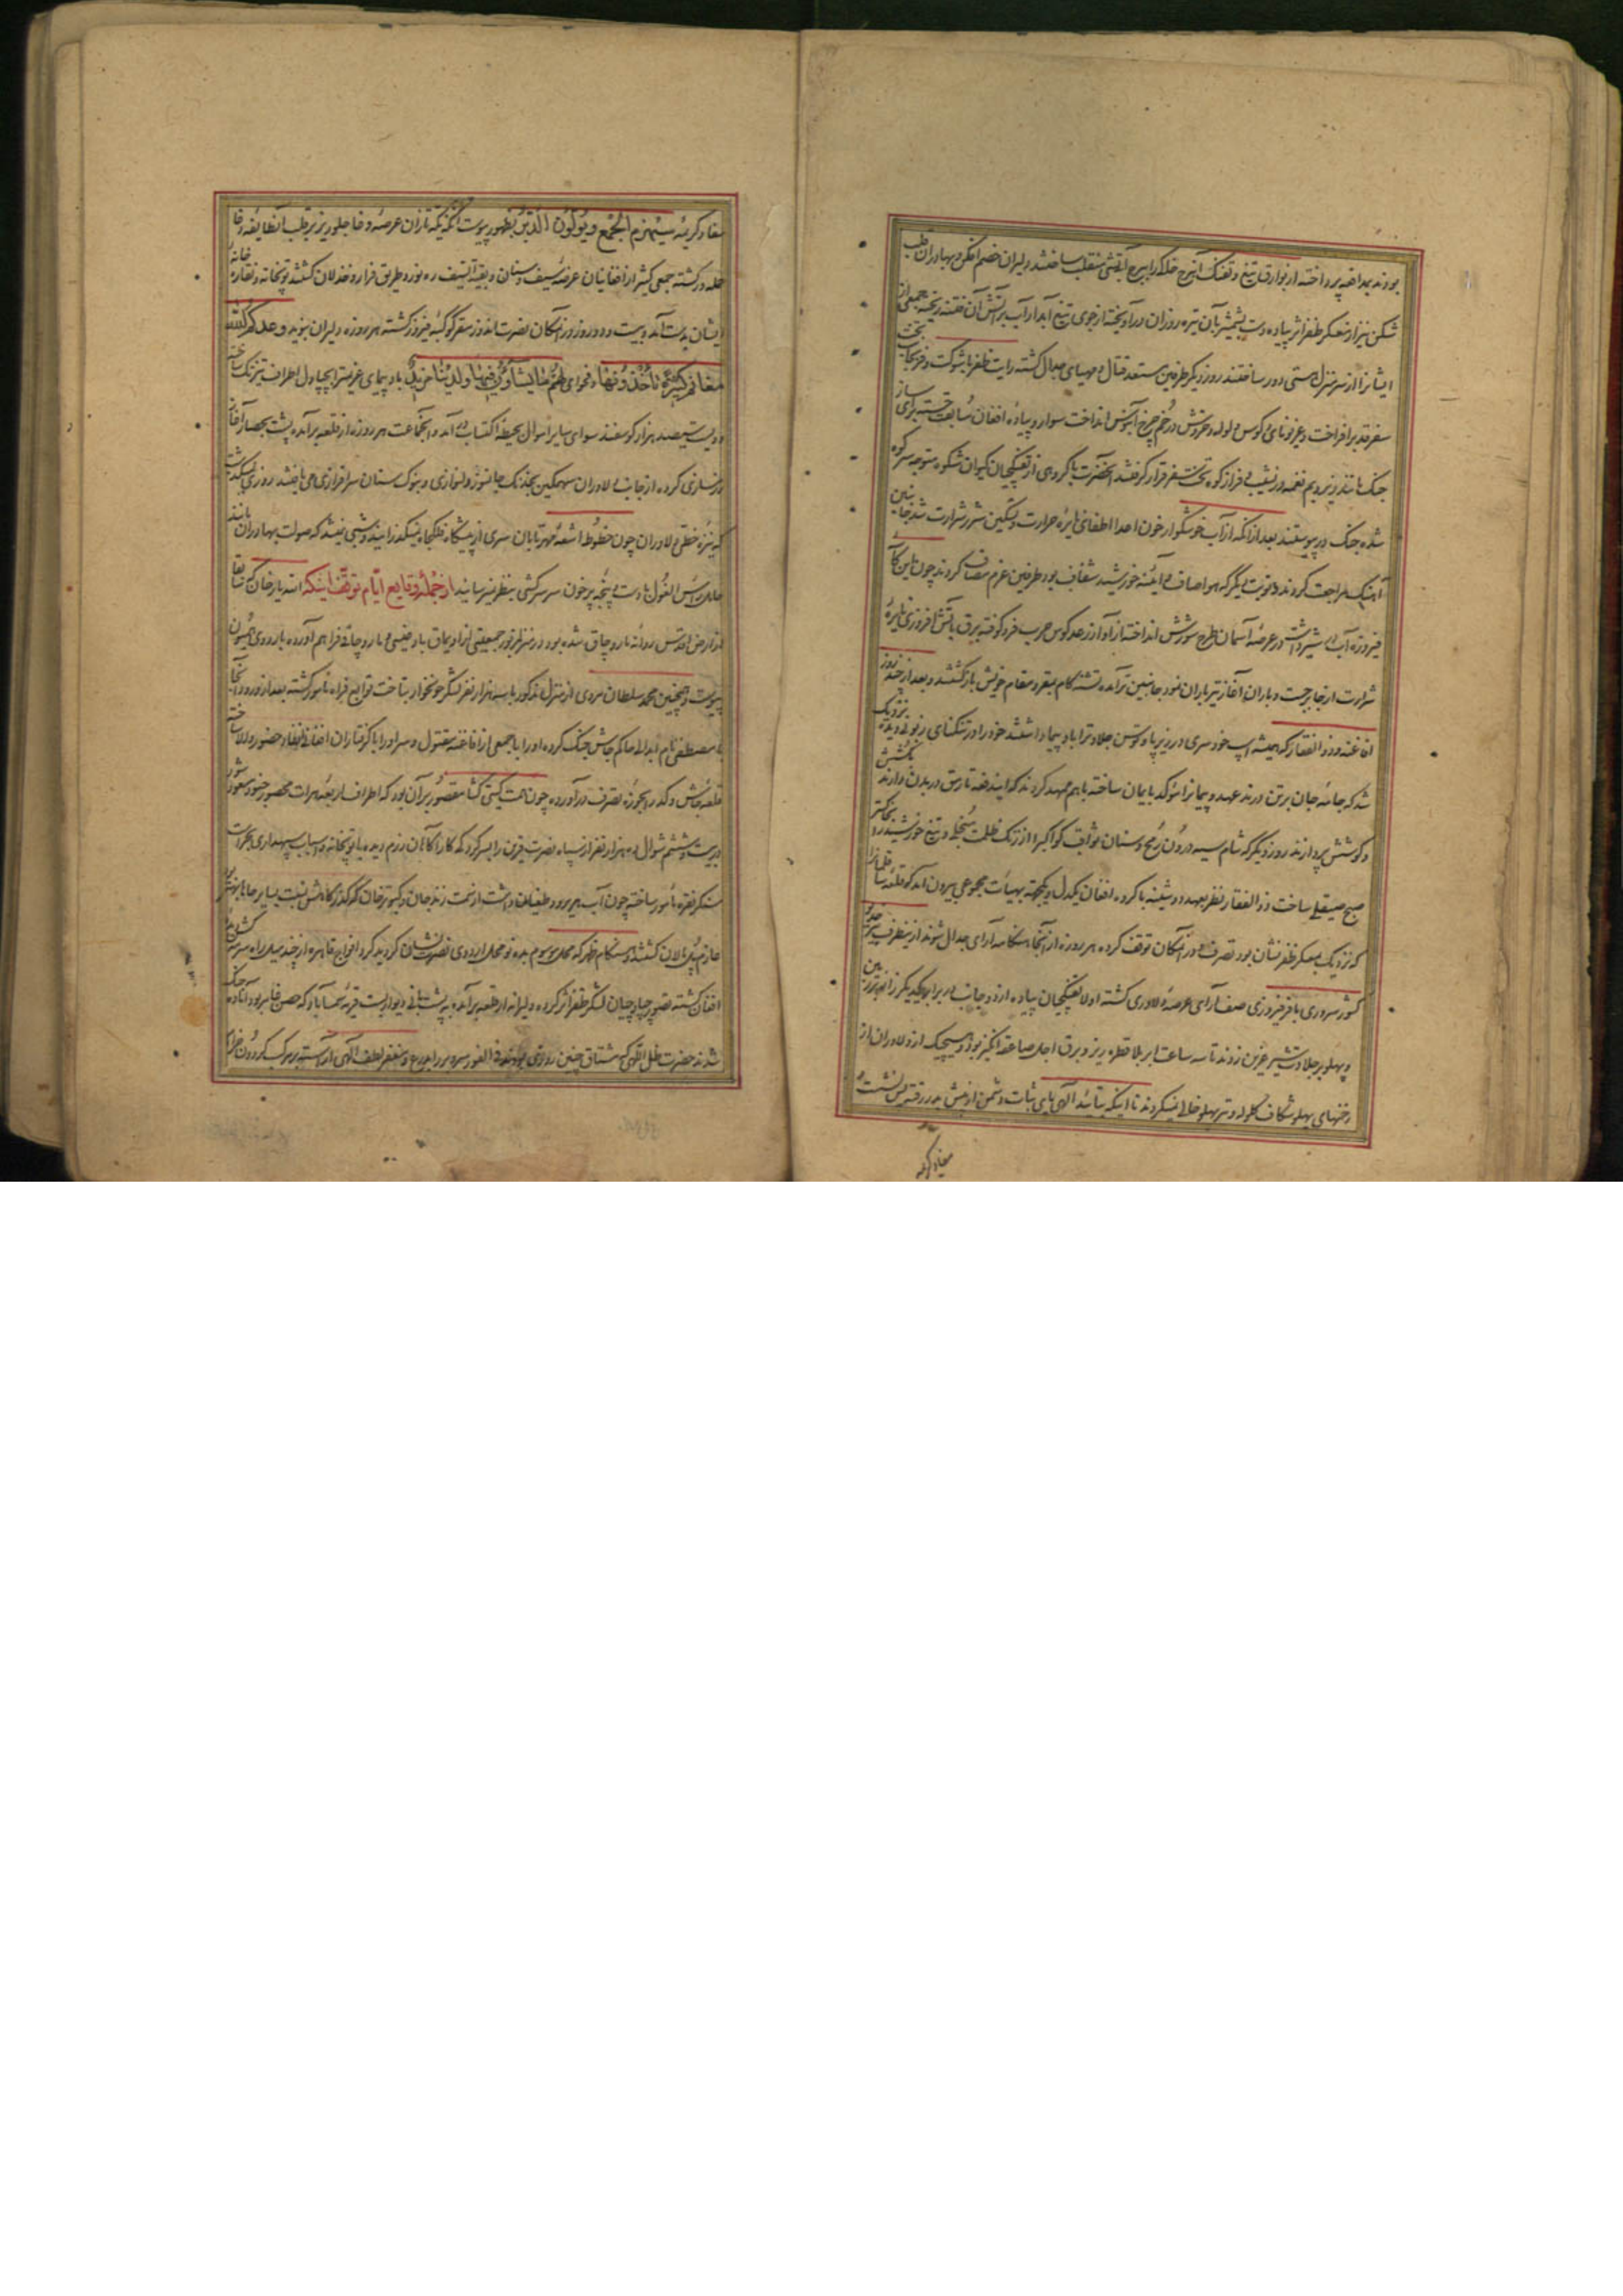 بودند بمدافعه پرداخته از بوارق تیغ و تفنک آن برج خاک را ببرج آتشی منقلب ساختند دلیران خصم افکن و بهادران قلب
شکن نیز از معسکر ظفر اثر پیاده دست بشمشیر بآن تیره روزان درآویخته از جوی تیغ آبدار آب بر آتش آن فتنه ریخته جمعی از
ایشانرا از سر منزل هستی دور ساختند روز دیگر طرفین مستعد قتال و مهیای جدال کشته رایت ظفر با شوکت و فر بجانب
سفر قد برافراخت و غریو نای و کوس ولوله و خروش در خم چرخ آبنوس انداخت سوار و پیاده افغان بسابقت جسته برای
جنک مانند زیر و بم نغمه در نشیب و فراز کوه سفر قرار کرفتند آنحضرت با کروهی از تفنکچیان کیوان شکوه متوجه سر کوه
شده جنک در پیوستند بعد از آنکه از آب خوشکوار خون اعدا اطفای نایره حرارت و تسکین شرر شرارت شد جانبین
آهنک مراجعت کردند و نوبت دیگر که هوا صاف و آینه خورشید شفاف بود طرفین عزم مصاف کردند چون
فیروزه آب در عرصه آسمان طرح شورش انداخته از آواز رعد کوس حرب فرو کوفته برق باتش افروزی نایره
شرارت از جا برجست و باران آغاز تیر باران نمود جانبین تر آمده تشنه کام بمقر و مقام خویش بازکشتند و بعد از چند روز
افاغنه و ذوالفقار که همیشه اسب خودسری در زیر پا و توسن جلادت را باد پیما داشتند خود را در تنکنای زبونی دیده نزدیک
شد که جامه جان بر تن درند عهد و پیمان را مؤکد بایمان ساخته با هم عهد کردند که ایندفعه تا رمق در بدن دارند بکشش
و کوشش پردازند روز دیگر که شام سیه درون رمح و سنان ثواقب کواکب را از زنک ظلمت منجلی و تیغ خورشید را بخاکستر
صبح صیقلی ساخت ذوالفقار نظر بعهد دوشینه با کروه افغان یکدل و یکجهة بهیأت مجموعی بیرون آمد که قلعه
که نزدیک بمعسکر ظفر نشان بود تصرف و در آنمکان توقف کرده هر روزه از آنجا هنکامه آرای جدال شوند از ینطرف خدیو
کشور سروری با فر فیروزی صف آرای عرصه دلاوری کشته اولا تفنکچیان پیاده از دو جانب در برابر یکدیگر زانو بر زمین
و پهلو بر جلادت شیر عرین زدند تا سه ساعت ابر بلا قطره ریز و برق اجل صاعقه انکیز بود و هیچیک از دلاوران از
زخمهای پهلو شکاف کلوله و تیر پهلو خالی نمیکردند تا اینکه بتأیید الهی پای ثبات دشمن از پیش بدر رفته پس نشست و
مفاد کریمه
مفاد کریمه سیهزم الجمع و یولون الدبر بظهور پیوست آنکه یکه تازان عرصه وغا جلو ریز بر قلب آنطایفه دغا
حمله ور کشته جمعی کثیر از افغانیان عرضه سیف و سنان و بقیة السیف ره نورد طریق فرار و خذلان کشتند توپخانه و نقاره خانه
ایشان بدست آمد و بیست و دو روز در آنمکان نصرت اندوز مقر کوکبه فیروز کشته هر روزه دلیران بنوید وعدکم الله
مغانم کثیرة تأخذونها و فحوای لهم ما یشاؤن فیها و لدینا مزید باد پیمای عزیمترا بچپاول اطراف تیز تک ساخته
دویست سیصد هزار کوسفند سوای سایر اموال بحیطه اکتساب در آمد و آنجماعت هر روزه از قلعه برآمده پشت بحصار آغاز
رزمسازی کرده از جانب دلاوران سهمکین بخدنک جانسوز دلنوازی و بنوک سنان سرافرازی می یافتند روزی نمیکذشت
که نیزه خطی دلاوران چون خطوط اشعه مهر تابان سری از پیشکاه فلکجاه نمیکذرانید و شبی نمیشد که صولت بهادران مانند
حامل راس الغول با دست و پنجه پر خون سر سرکشی بنظر نمیرسانید از جمله وقایع ایام توقف اینکه اله یار خان که سابقا
از ارض اقدس روانه ماروچاق شده بود در منزل مزبور جمعیتی از اویماق بادغیسی و ماروچاقی فراهم آورده باردوی همیون
پیوست و همچنین محمد سلطان مروی از منزل مذکور با سه هزار نفر لشکر خونخوار بتاخت توابع فراه مأمور کشته بعد از ورود آنجا
با مصطفی نام ابدالی حاکم جاش جنک کرده او را با جمعی از افاغنه مقتول و سر او را با کرفتاران افغان انفاد حضور والا ساخته
قلعه جاش و کدر را بحوزه تصرف درآورده چون همت کیتی کشا مقصور بر آن بود که اطراف اربعه هرات محصور جنود منصور شود
در بیست و ششم شوال ده هزار نفر از سپاه نصرت قرین را بسرکرد که کارآکاهان رزم دیده با توپخانه و اسباب سپهداری
سنکر نقره مأمور ساخته چون آب هریرود طغیان داشت
عازم پل مالان کشتند و هنکام ظهر که محل موسوم بده نو محل اردوی نصرت نشان کردید کرد افواج قاهره از چند میل راه سرمه کش دیده
افغان کشته تصور چپاولچیان لشکر ظفر اثر کرده دلیرانه از قلعه برآمده به پشت بانی دیوار بست قریه شمس آباد که حصن فنا بر بود آماده جنک
شدند حضرت ظل اللهی که مشتاق چنین روزی بودند فی الفور سر و بر را بدرع و مغفر لطف الهی آراسته بر مرکب کردون خرام